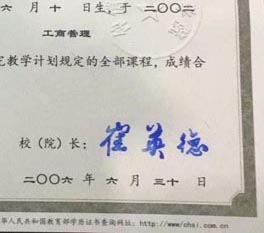 六 月 十 日生，于 二〇〇二
工商管理
教学计划规定的全部课程，成绩合
校（院）长： 崔英德
二〇〇六 年 六 月 三十 日
华人民共和国教育部学历证书查询网址：http://www.chsi.com.cn